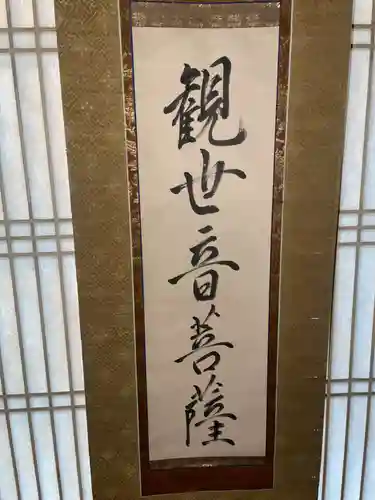 観世音菩薩